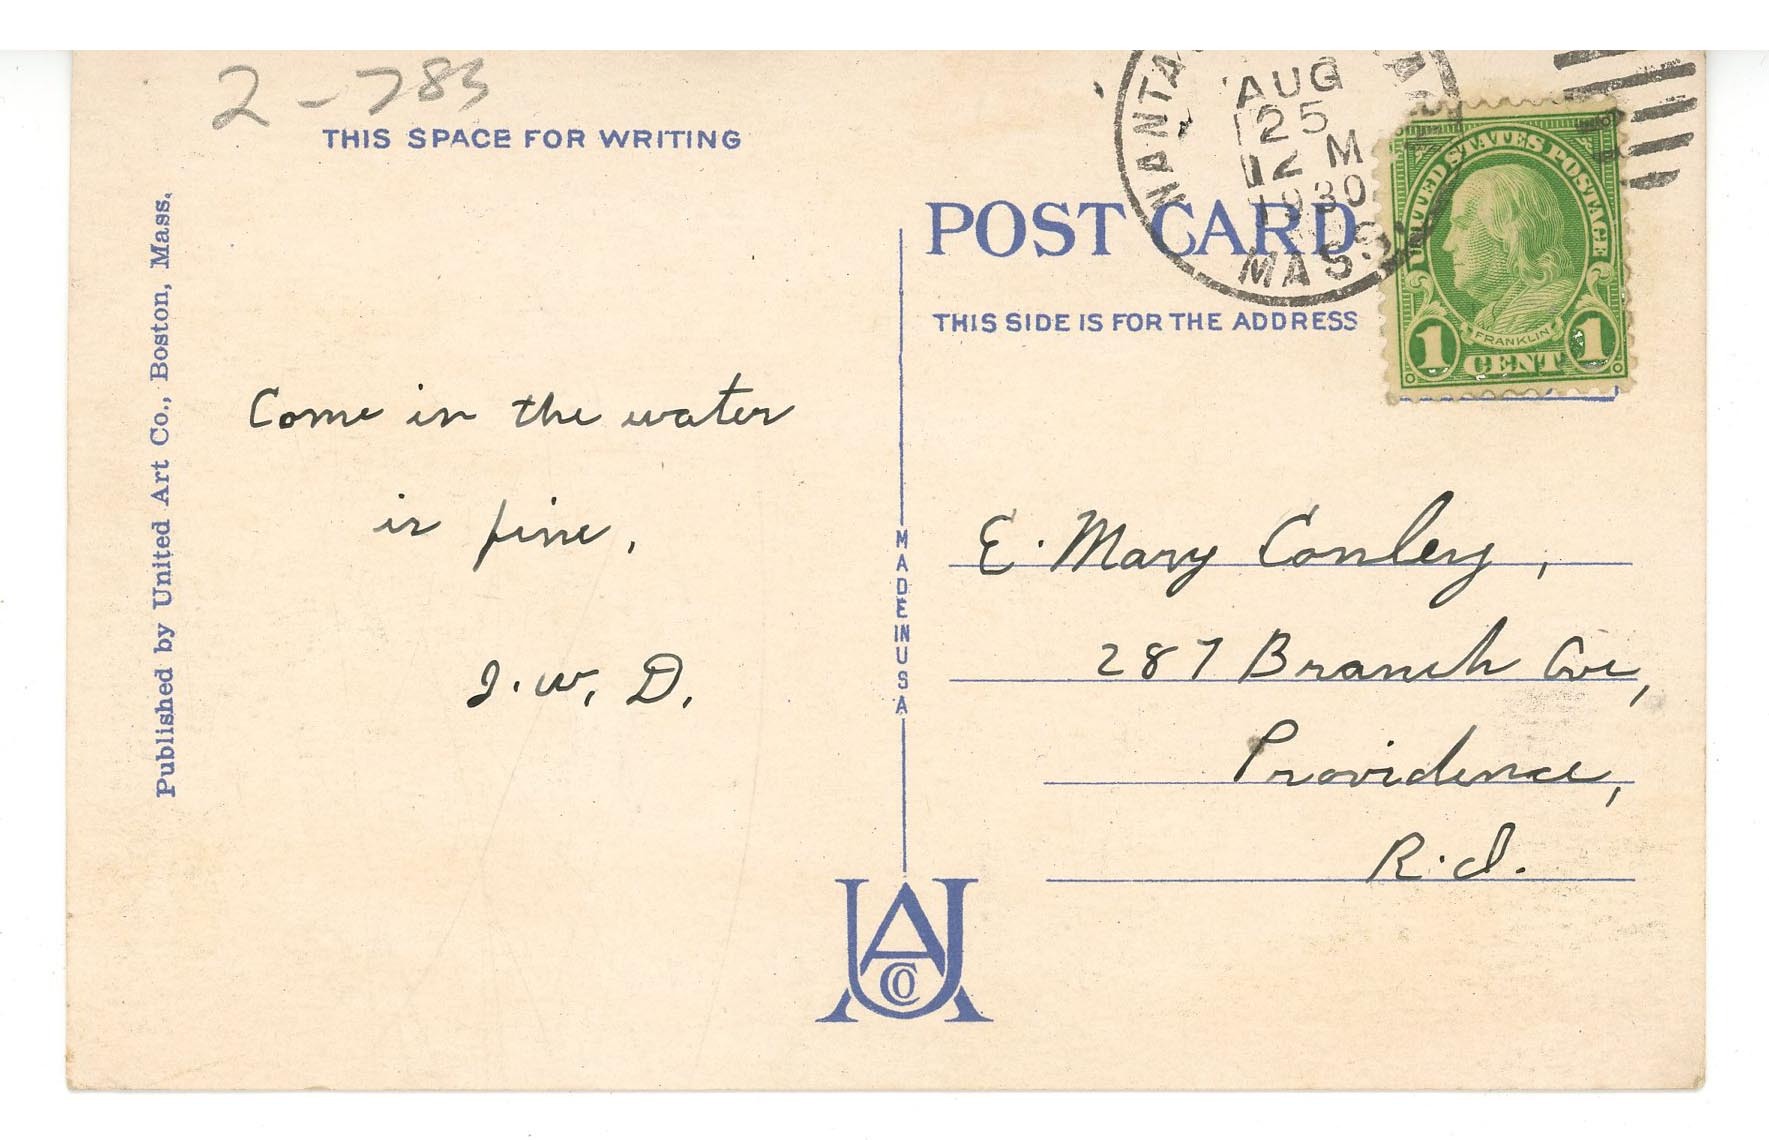 2-783
THIS SPACE FOR WRITING
Published by United Art Co., Boston, Mass.
Come in the water
is fine,
J. W. D.
MADE IN USA
POST CARD
THIS SIDE IS FOR THE ADDRESS
NANTA
AUG
25
12 M
1930
MASS.
UNITED STATES POSTAGE
FRANKLIN
1 CENT 1
E. Mary Conley,
287 Branch Ave,
Providence,
R.I.
UACO